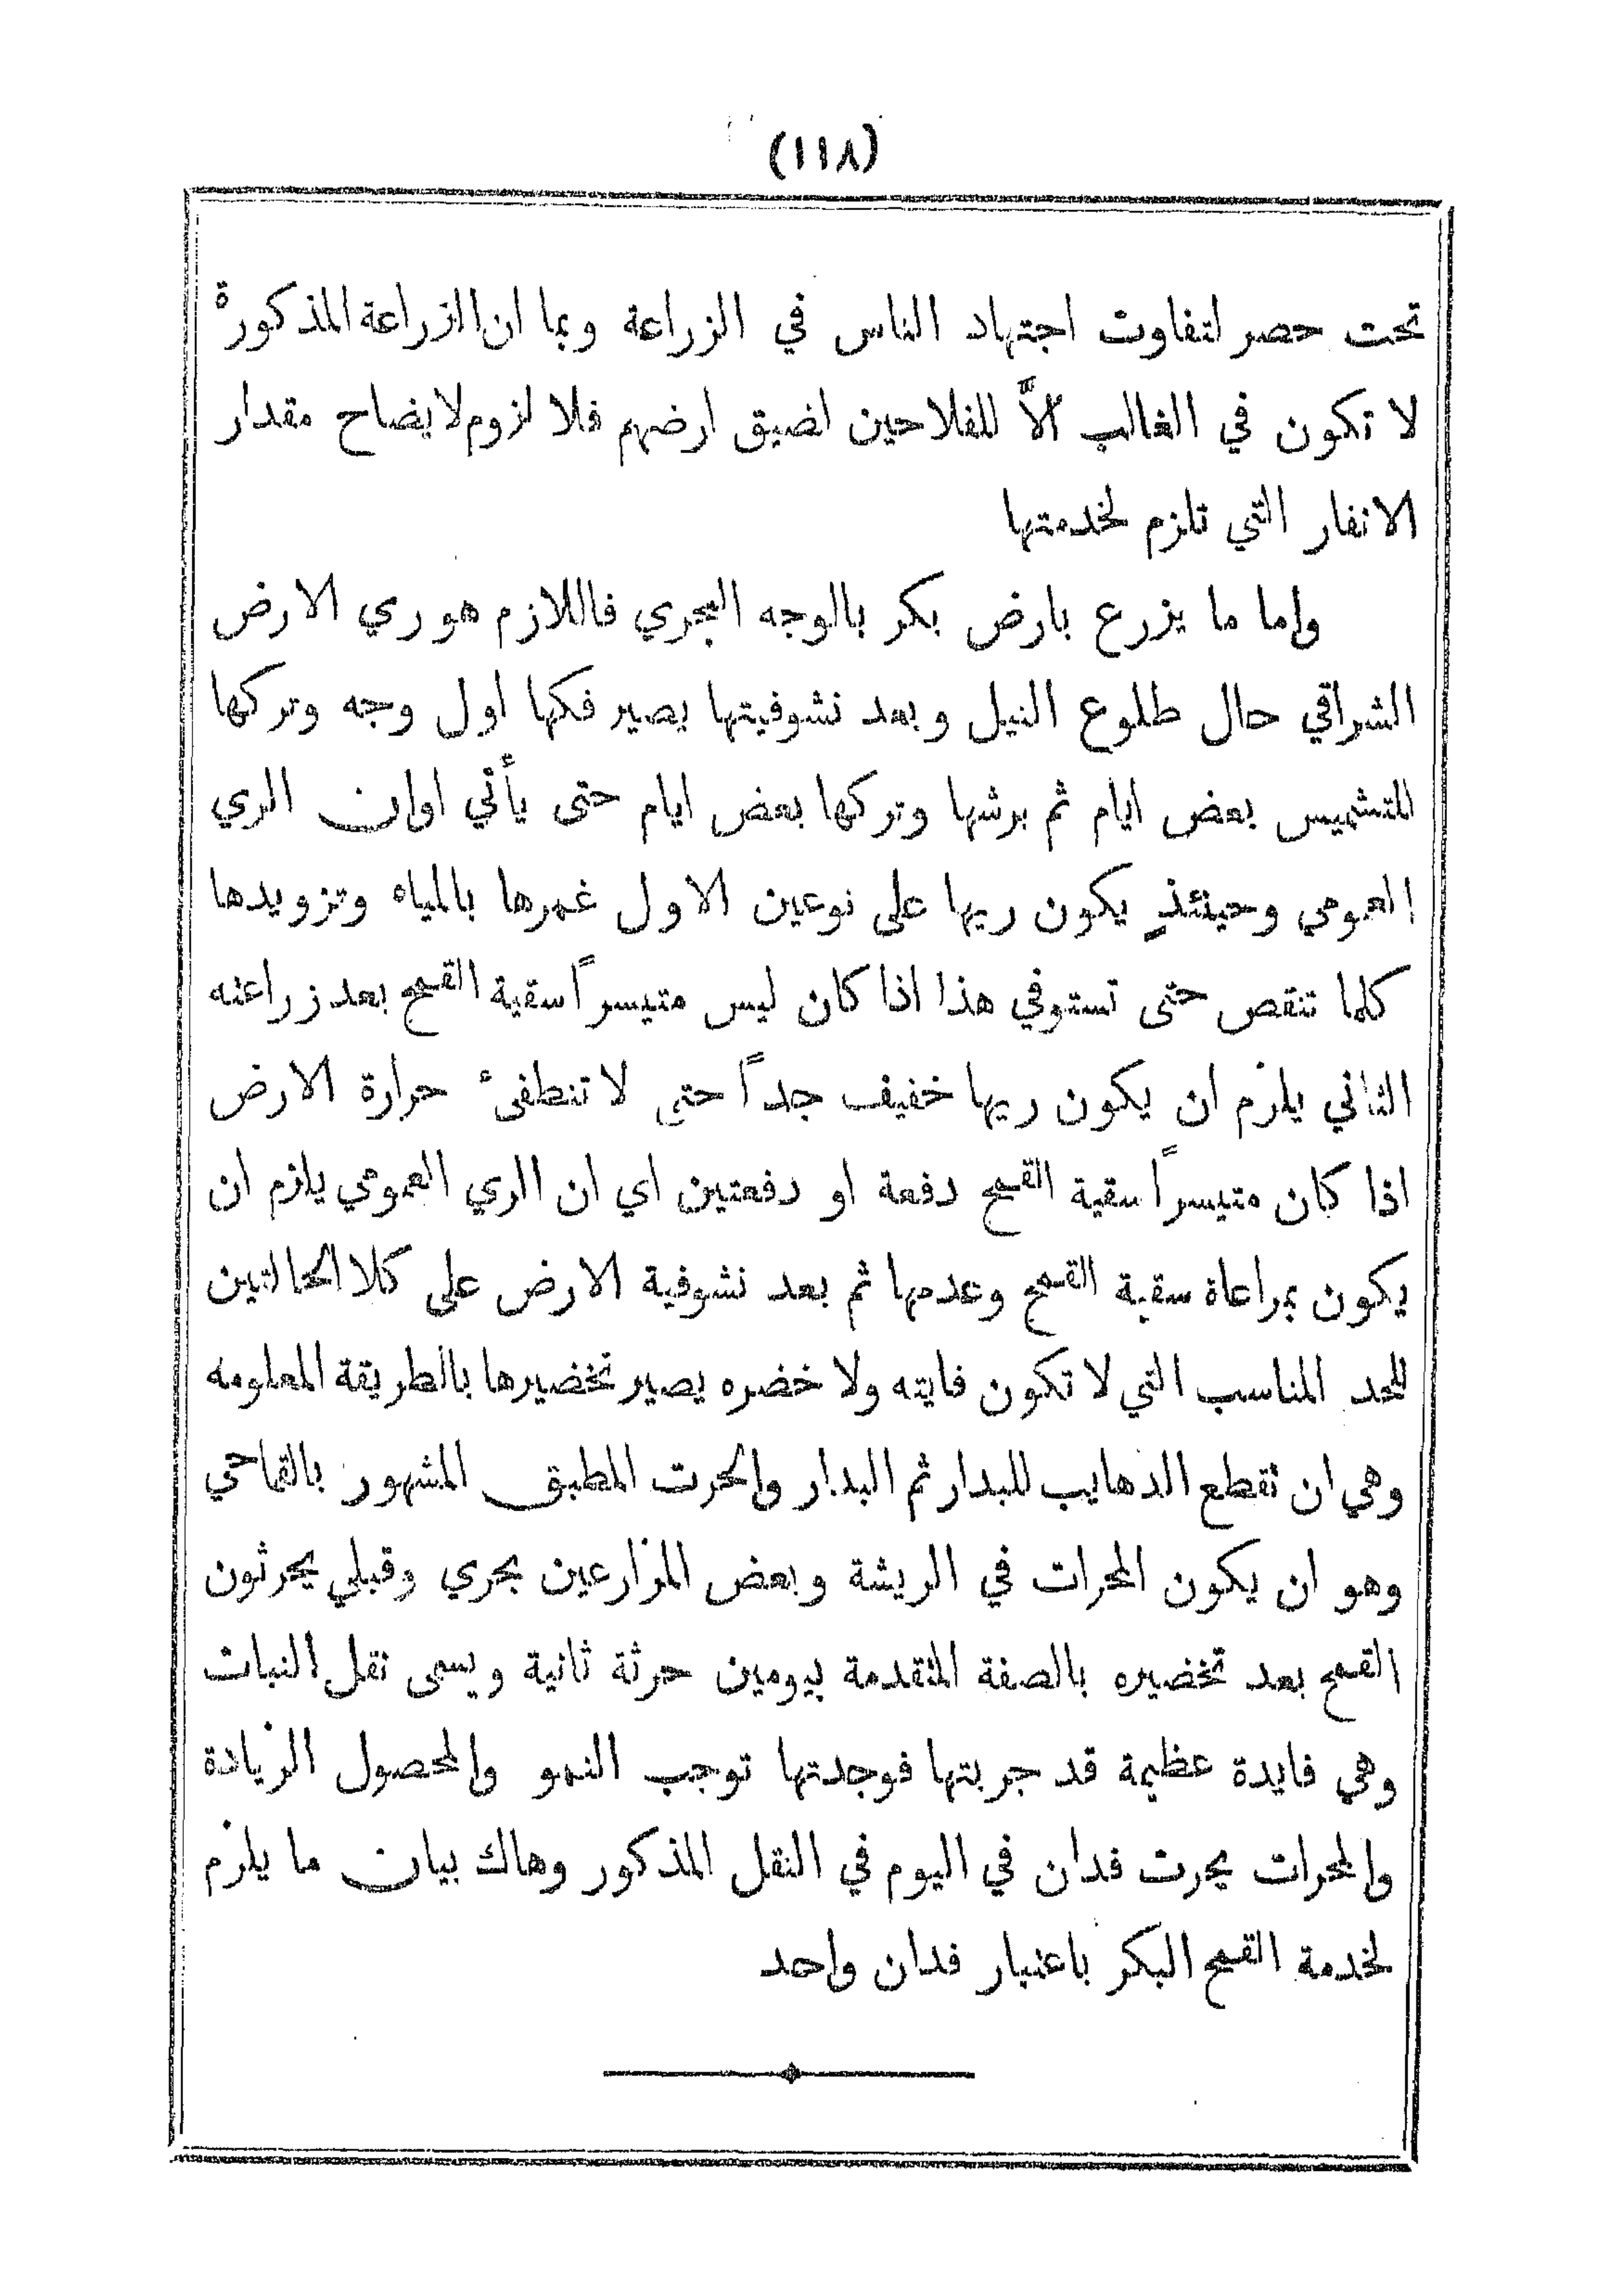 (١١٨)
تحت حصر لتفاوت اجتهاد الناس في الزراعة وبما ان الزراعة المذكورة
لا تكون في الغالب الاَّ للفلاحين لضيق ارضهم فلا لزوم لايضاح مقدار
الانفار التي تلزم لخدمتها
واما ما يزرع بارض بكر بالوجه البحري فاللازم هو ري الارض
الشراقي حال طلوع النيل وبعد نشوفيتها يصير فكها اول وجه وتركها
للتشميس بعض ايام ثم برشها وتركها بعض ايام حتى يأتي اوان الري
العمومي وحينئذٍ يكون ريها على نوعين الاول غمرها بالمياه وتزويدها
كلما تنقص حتى تستوفي هذا اذا كان ليس متيسراً سقية القمح بعد زراعته
الثاني يلزم ان يكون ريها خفيف جداً حتى لا تنطفئ حرارة الارض
اذا كان متيسراً سقية القمح دفعة او دفعتين اي ان الري العمومي يلزم ان
يكون بمراعاة سقية القمح وعدمها ثم بعد نشوفية الارض على كلا الحالتين
للحد المناسب التي لا تكون فايته ولا خضره يصير تخضيرها بالطريقة المعلومه
وهي ان نقطع الدهايب للبدار ثم البدار والحرت المطبق المشهور بالقماحي
وهو ان يكون المحرات في الريشة وبعض المزارعين بحري وقبلي يحرثون
القمح بعد تخضيره بالصفة المتقدمة بيومين حرثة ثانية ويسمى نقل النبات
وهي فايدة عظيمة قد جربتها فوجدتها توجب النمو والمحصول الزيادة
والمحرات يحرت فدان في اليوم في النقل المذكور وهاك بيان ما يلزم
لخدمة القمح البكر باعتبار فدان واحد